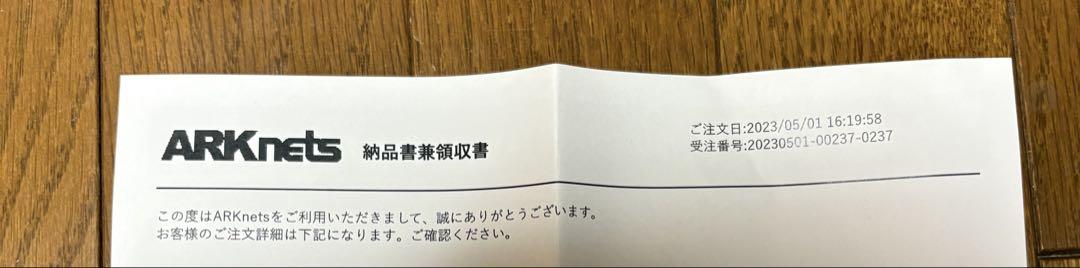 ARKnets 納品書兼領収書
ご注文日:2023/05/01 16:19:58
受注番号:20230501-00237-0237
この度はARKnetsをご利用いただきまして、誠にありがとうございます。
お客様のご注文詳細は下記になります。ご確認ください。